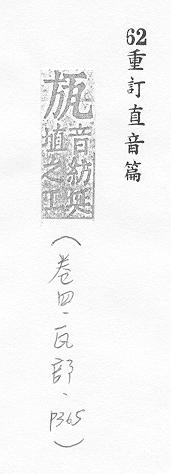 62重訂直音篇
旊音紡埏
埴之工
(卷四．瓦部．P365)